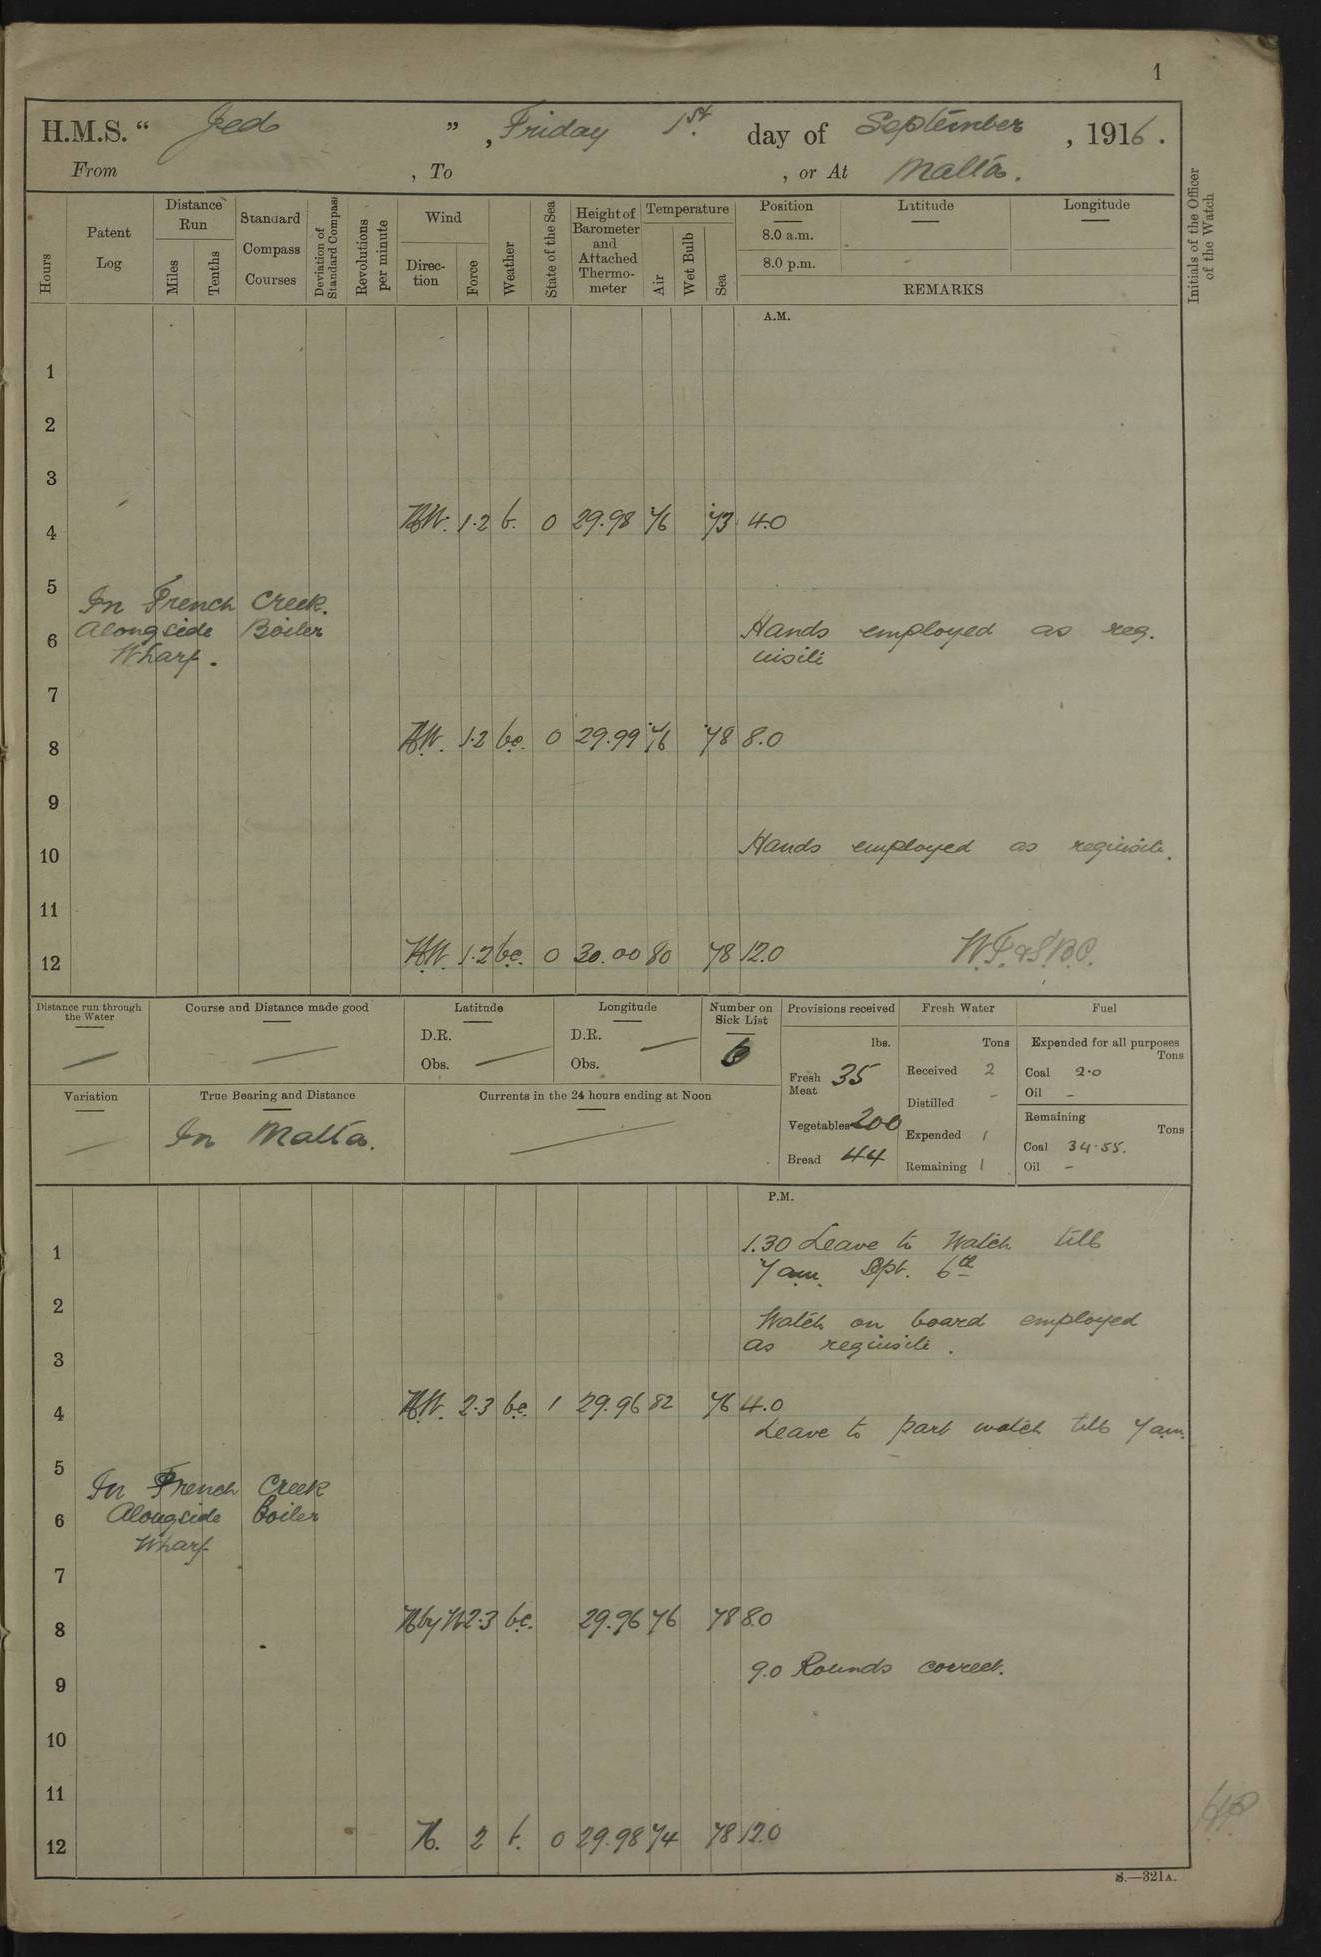 1
H.M.S. “ Jed ” , Friday 1st. day of September , 1916 .
From , To , or At Malta.
Hours
Patent Log
Distance Run
Miles
Tenths
Standard Compass Courses
Deviation of Standard Compass
Revolutions per minute
Wind
Direc-tion
Force
Weather
State of the Sea
Height of Barometer and Attached Thermo-meter
Temperature
Air
Wet Bulb
Sea
Position Latitude Longitude
8.0 a.m.
8.0 p.m.
REMARKS
Initials of the Officer of the Watch
A.M.
1
2
3
4 N.W. 1.2 b. 0 29.98 76 73 4.0
5
In French Creek.
6 Alongside Boiler Hands employed as req.
Wharf. uisite
7
8 N.W. 1.2 b.c. 0 29.99 76 78 8.0
9
10 Hands employed as requisite.
11
12 N.W. 1.2 b.c. 0 30.00 80 78 12.0
Distance run through the Water
Course and Distance made good
Latitude
D.R.
Obs.
Longitude
D.R.
Obs.
Number on Sick List
6
Provisions received
lbs.
Fresh Meat 35
Vegetables 200
Bread 44
Fresh Water
Tons
Received 2
Distilled -
Expended 1
Remaining 1
Fuel
Expended for all purposes
Tons
Coal 2.0
Oil -
Remaining
Tons
Coal 34.55.
Oil -
Variation
True Bearing and Distance
In Malta.
Currents in the 24 hours ending at Noon
P.M.
1 1.30 Leave to Watch till
7 am. Sept. 6th
2 Watch on board employed
3 as requisite.
4 N.W. 2.3 b.c. 1 29.96 82 76 4.0
Leave to part watch till 7 am.
5
In French Creek
6 Alongside Boiler
Wharf
7
8 N by W 2.3 b.c. 29.96 76 78 8.0
9 9.0 Rounds correct.
10
11
12 N. 2 b. 0 29.98 74 78 12.0
S.—321A.